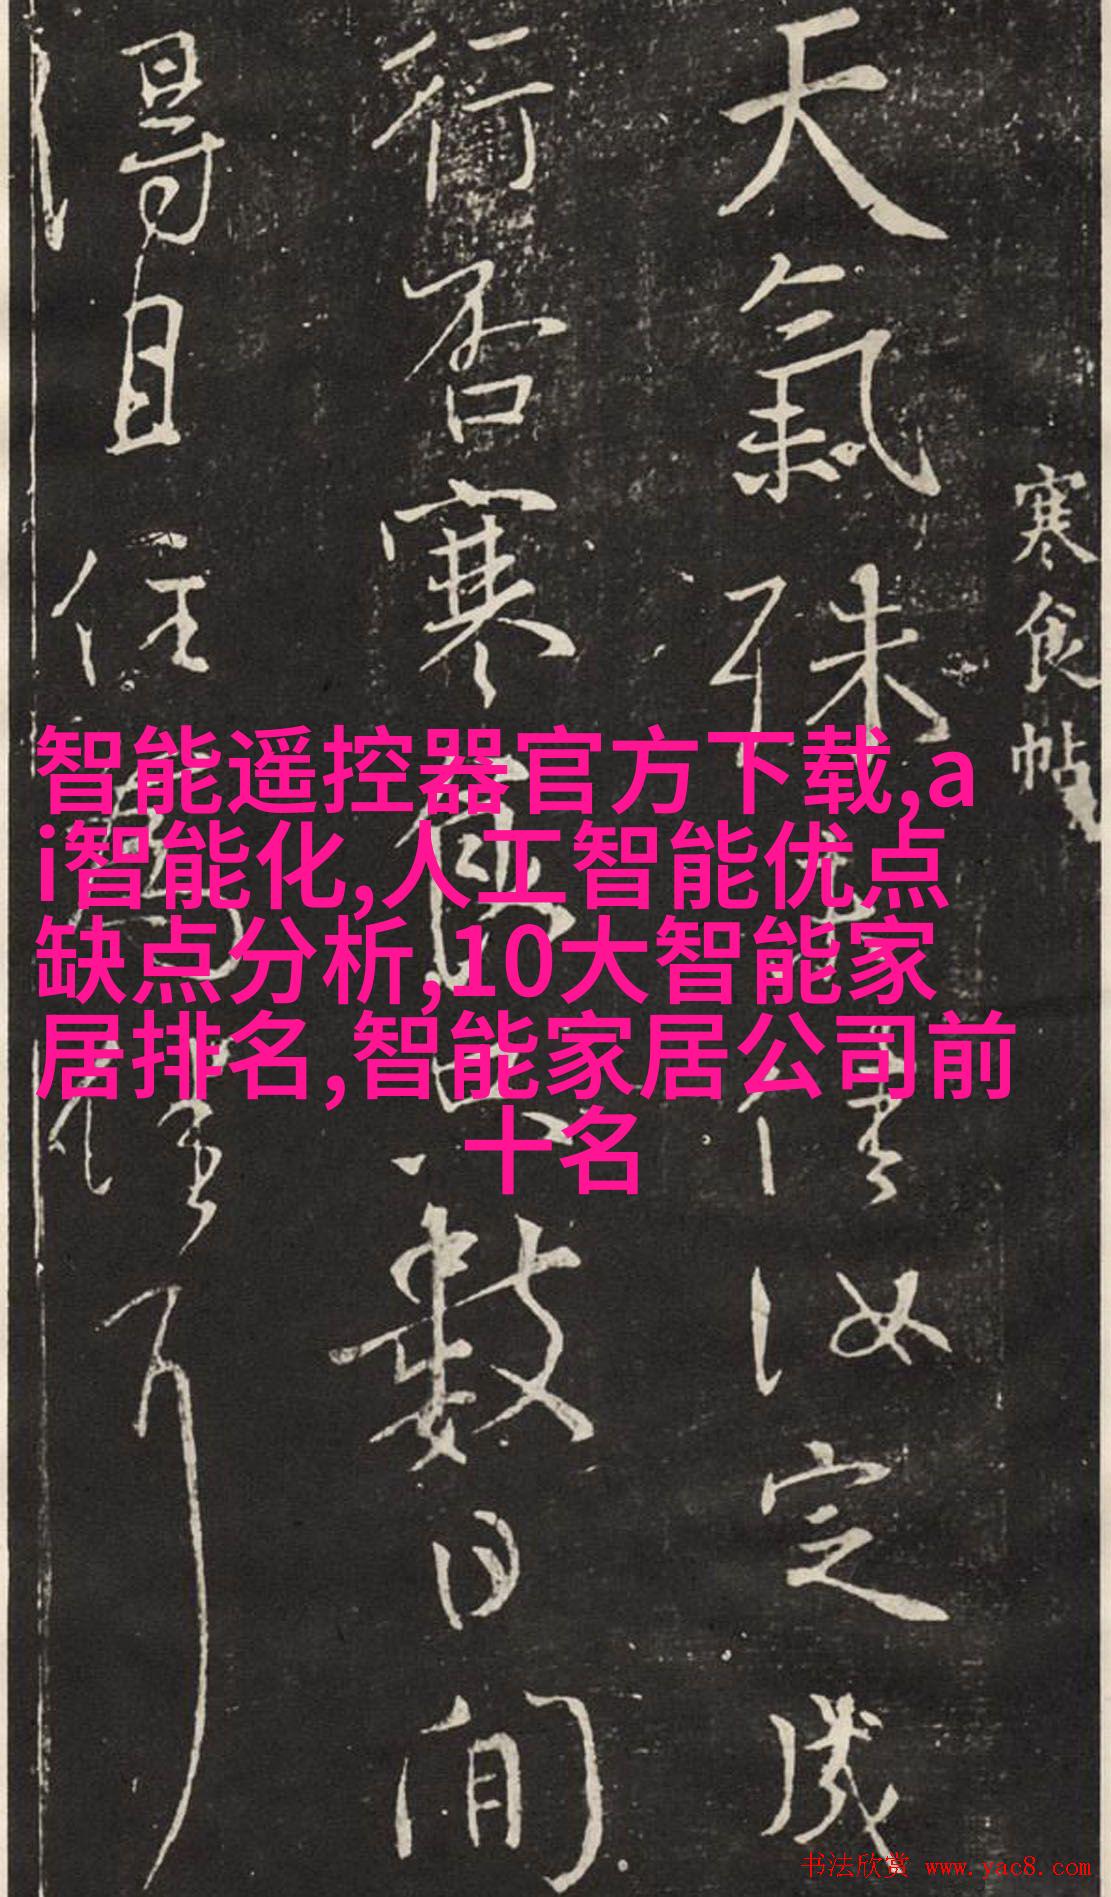 寒食帖
天氣殊未佳汝定成
行否寒食只數日間
得且住為佳耳
智能遥控器官方下载,a
i智能化,人工智能优点
缺点分析,10大智能家
居排名,智能家居公司前
十名
书法欣赏 www.yac8.com